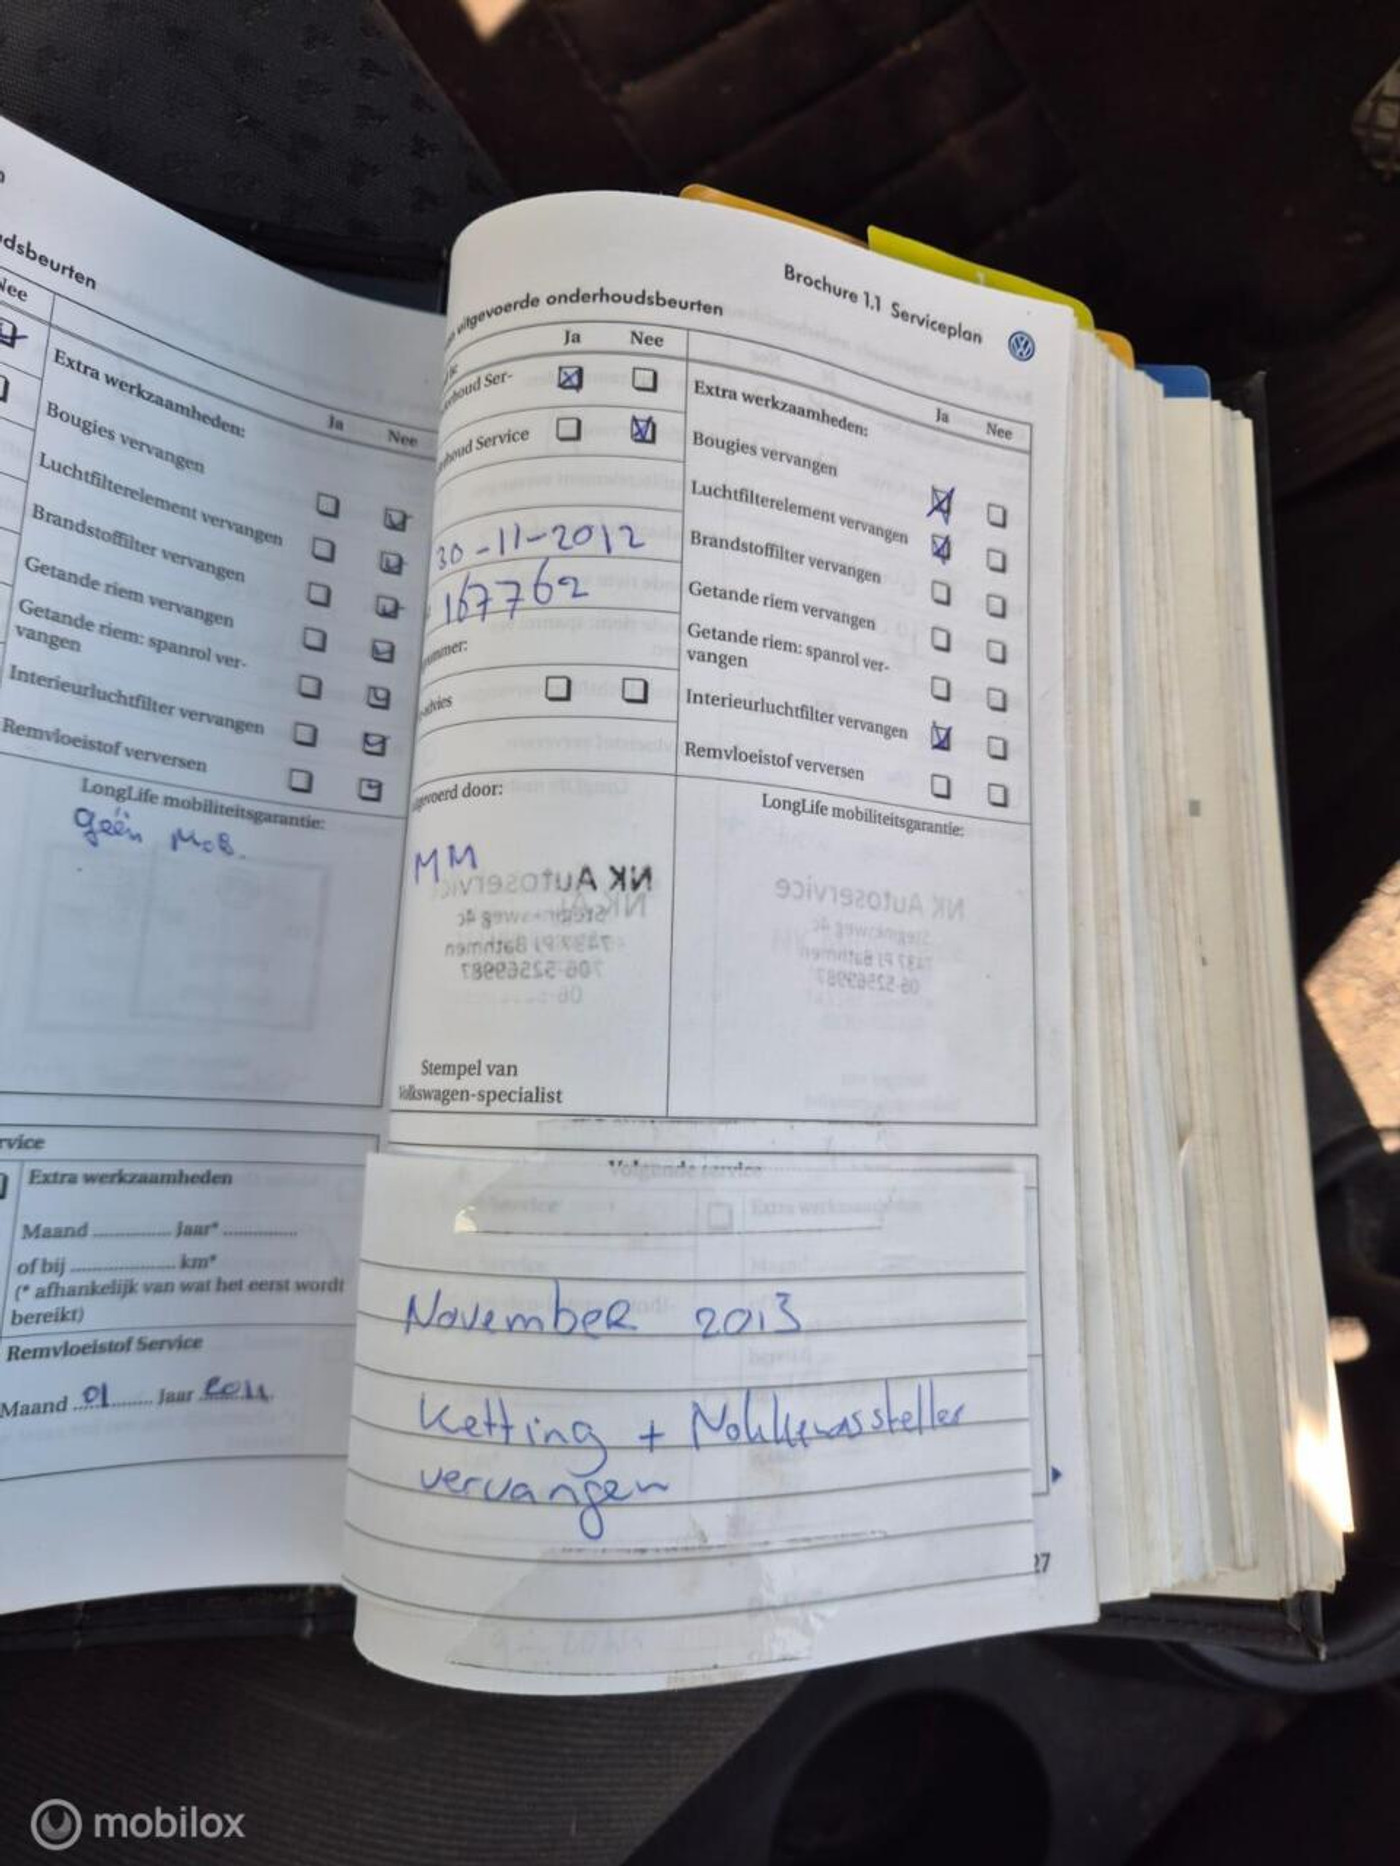 dsbeurten
Nee
Extra werkzaamheden:
Ja Nee
Bougies vervangen
Luchtfilterelement vervangen
Brandstoffilter vervangen
Getande riem vervangen
Getande riem: spanrol ver-
vangen
Interieurluchtfilter vervangen
Remvloeistof verversen
LongLife mobiliteitsgarantie:
geen MoB.
rvice
Extra werkzaamheden
Maand .............. Jaar* ..............
of bij .................... km*
(* afhankelijk van wat het eerst wordt
bereikt)
Remvloeistof Service
Maand 01 Jaar 2011
Brochure 1.1 Serviceplan
uitgevoerde onderhoudsbeurten
Ja Nee
erhoud Ser-
houd Service
30-11-2012
167762
ummer:
advies
Extra werkzaamheden:
Ja Nee
Bougies vervangen
Luchtfilterelement vervangen
Brandstoffilter vervangen
Getande riem vervangen
Getande riem: spanrol ver-
vangen
Interieurluchtfilter vervangen
Remvloeistof verversen
gevoerd door:
MM
NK Autoservice
7437 PJ Bathmen
06-52569987
Stempel van
Volkswagen-specialist
LongLife mobiliteitsgarantie:
NK Autoservice
7437 PJ Bathmen
06-52569987
Volgende service
Service
Extra werkzaamheden
November 2013
Ketting + Nokkenassteller
vervangen
27
mobilox